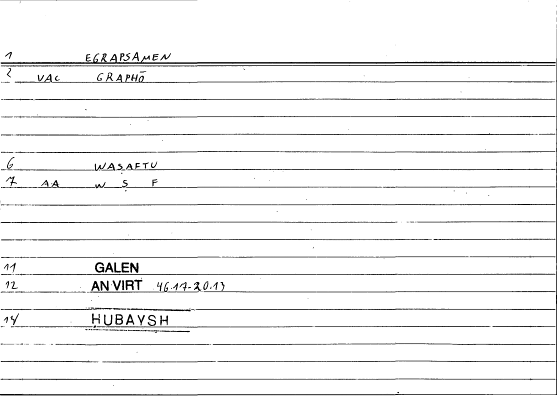 1 EGRAPSAMEN
2 VAC GRAPHŌ
6 WASAFTU
7 AA W S F
11 GALEN
12 AN VIRT 46.17-20.13
14 ḤUBAYSH